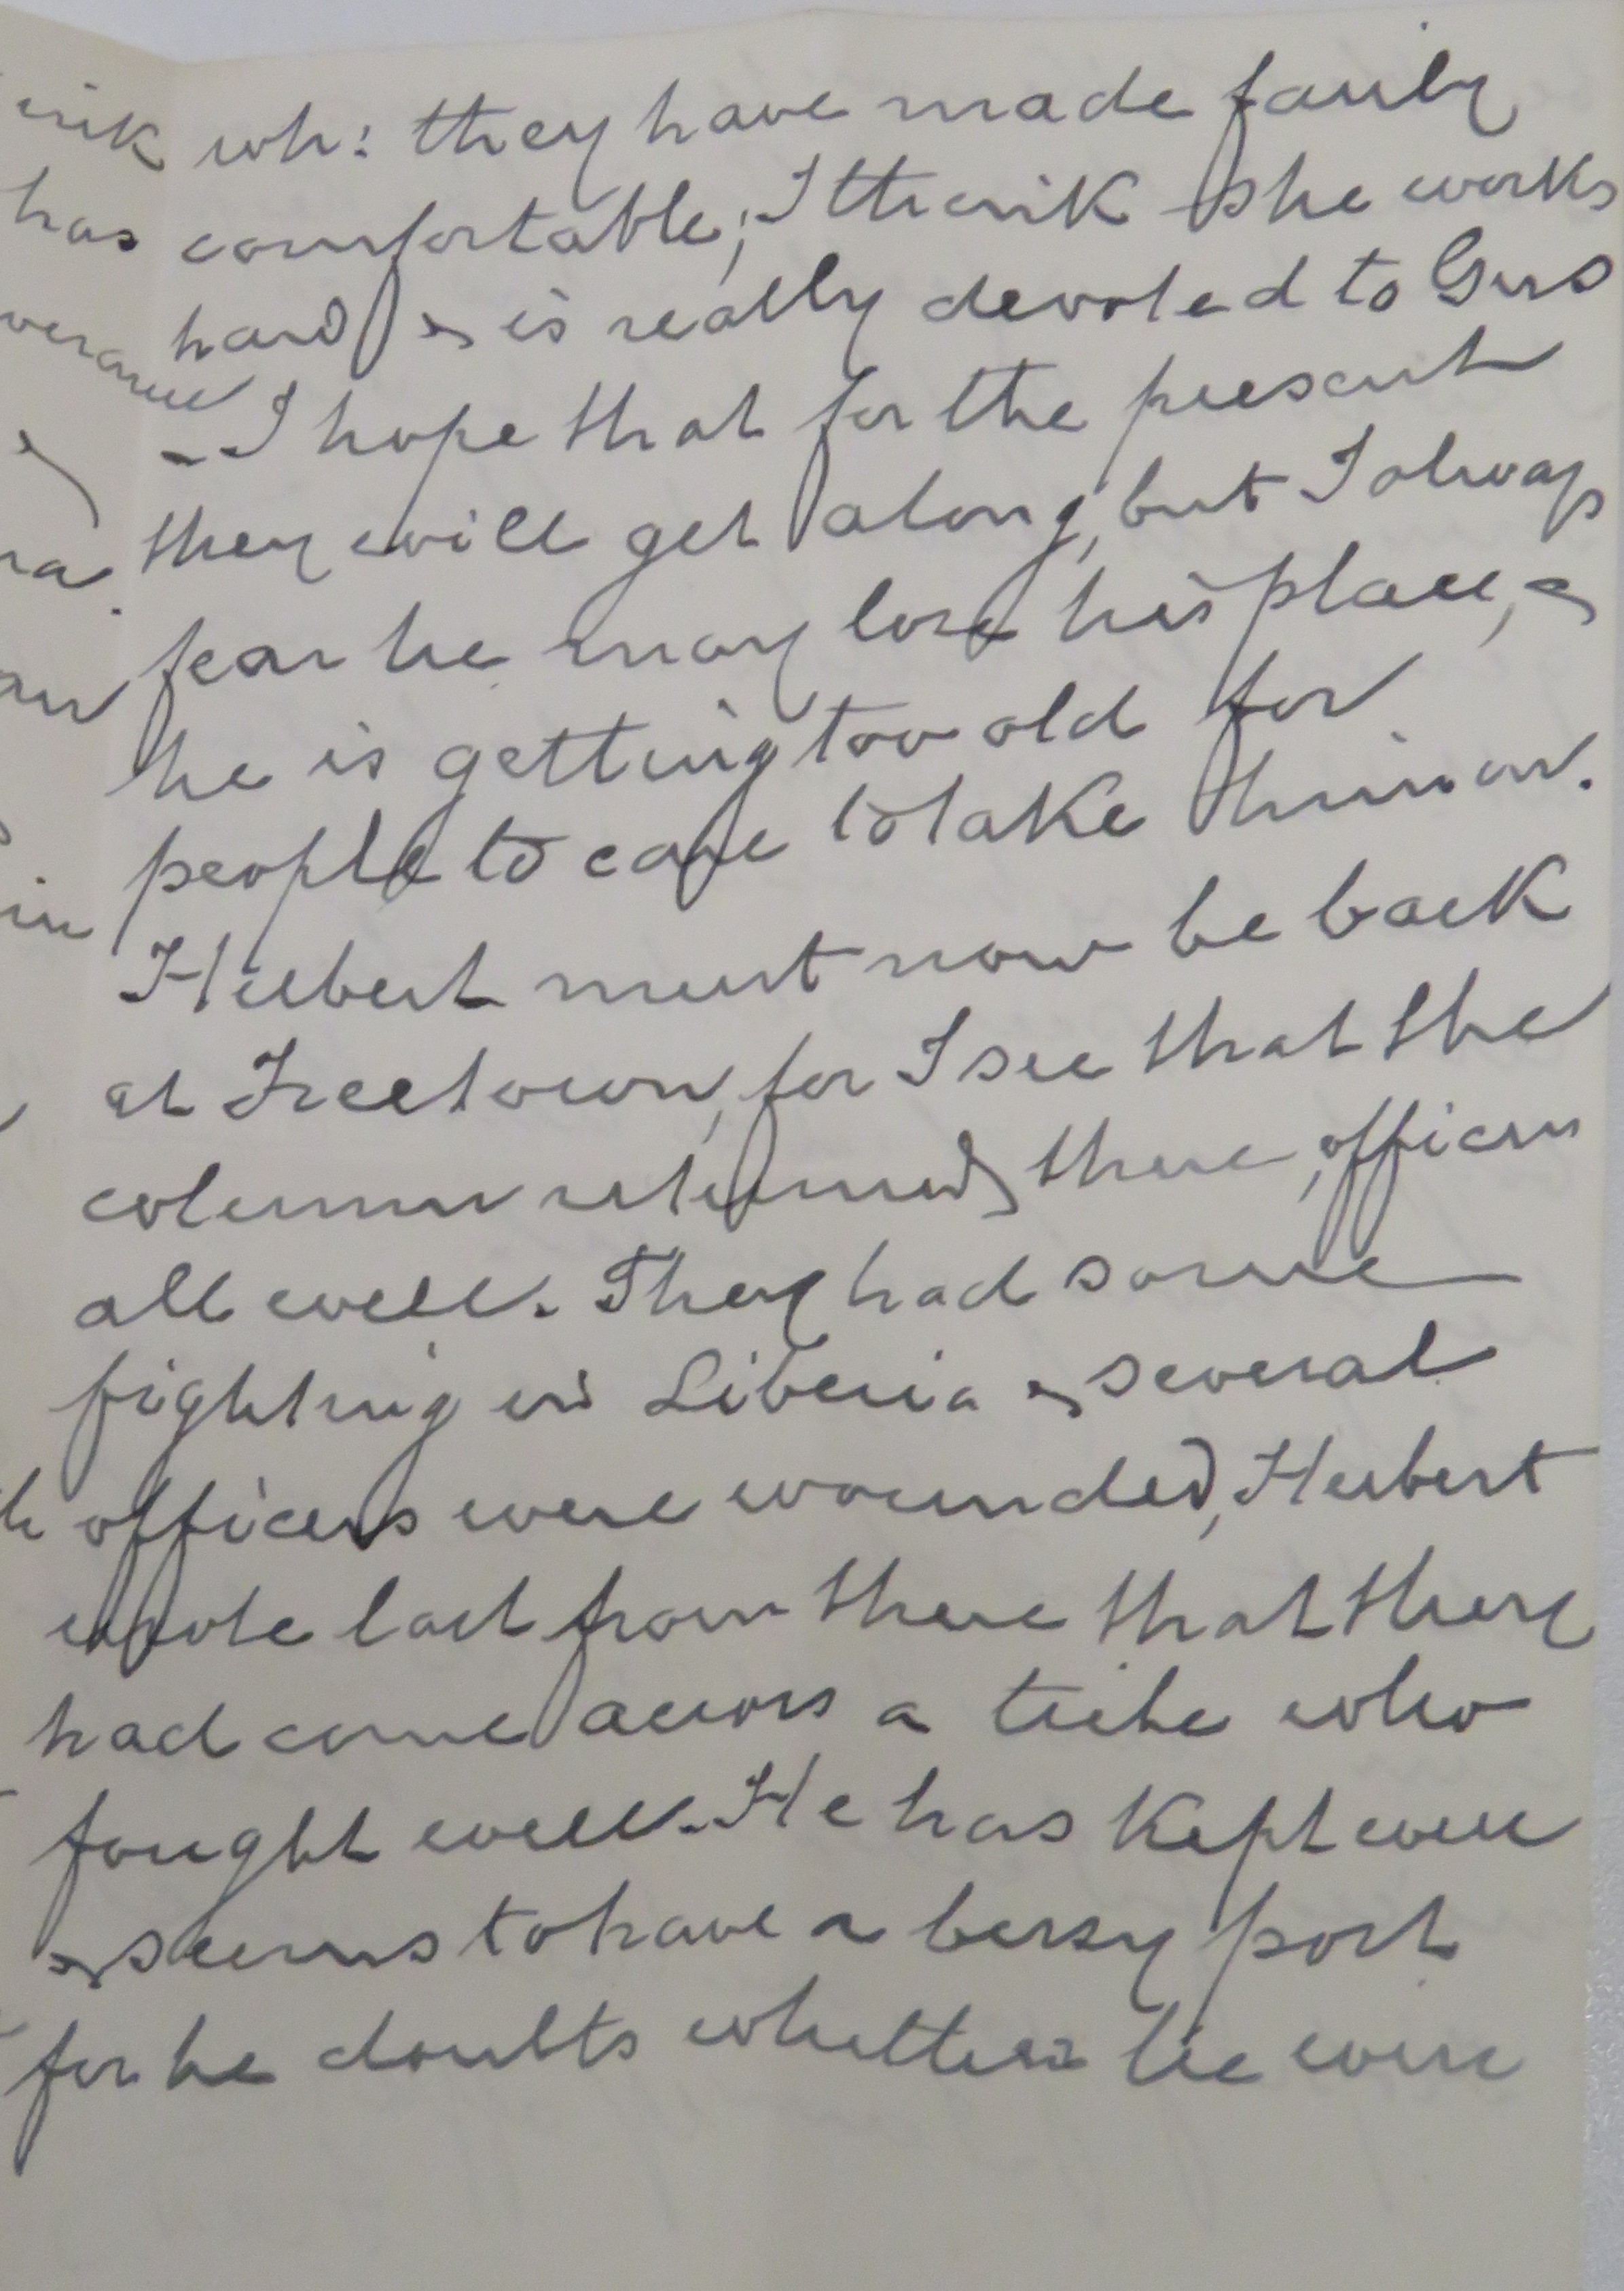 wh: they have made fairly
comfortable; I think she works
hard & is really devoted to Gus
- I hope that for the present
they will get along, but I always
fear he may lose his place, &
he is getting too old for
people to care to take him on.
Herbert must now be back
at Freetown, for I see that the
column returned there, officers
all well. They had some
fighting in Liberia & several
officers were wounded, Herbert
wrote last from there that they
had come across a tribe who
fought well. He has kept well
& seems to have a busy post
for he doubts whether he
has
in